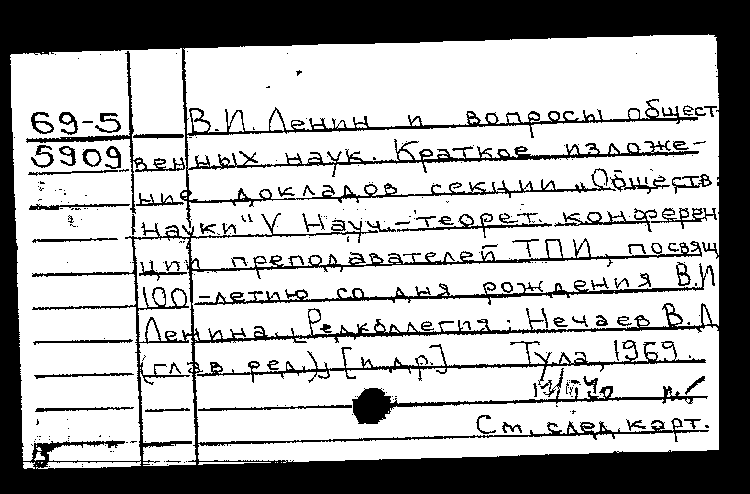 69-5 В.И. Ленин и вопросы общест-
5909 венных наук. Краткое изложе-
ние докладов секции „Обществ.
науки" V Науч.-теорет. конферен
ции преподавателей ТПИ, посвящ
100-летию со дня рождения В.И
Ленина. [Редколлегия: Нечаев В.Д
(глав. ред.)] [и др.] Тула, 1969.
См. след. карт.